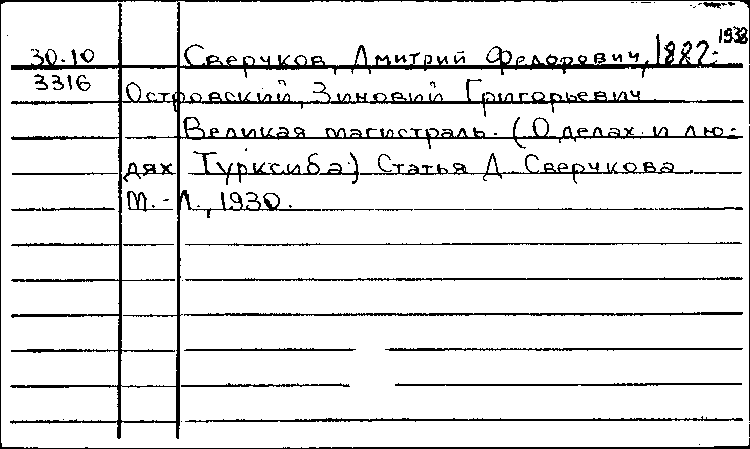 30.10 Сверчков, Дмитрий Федорович, 1882-1938
3316 Островский, Зиновий Григорьевич
Великая магистраль. (О делах и лю-
дях Турксиба) Статья Д. Сверчкова.
М.-Л., 1930.